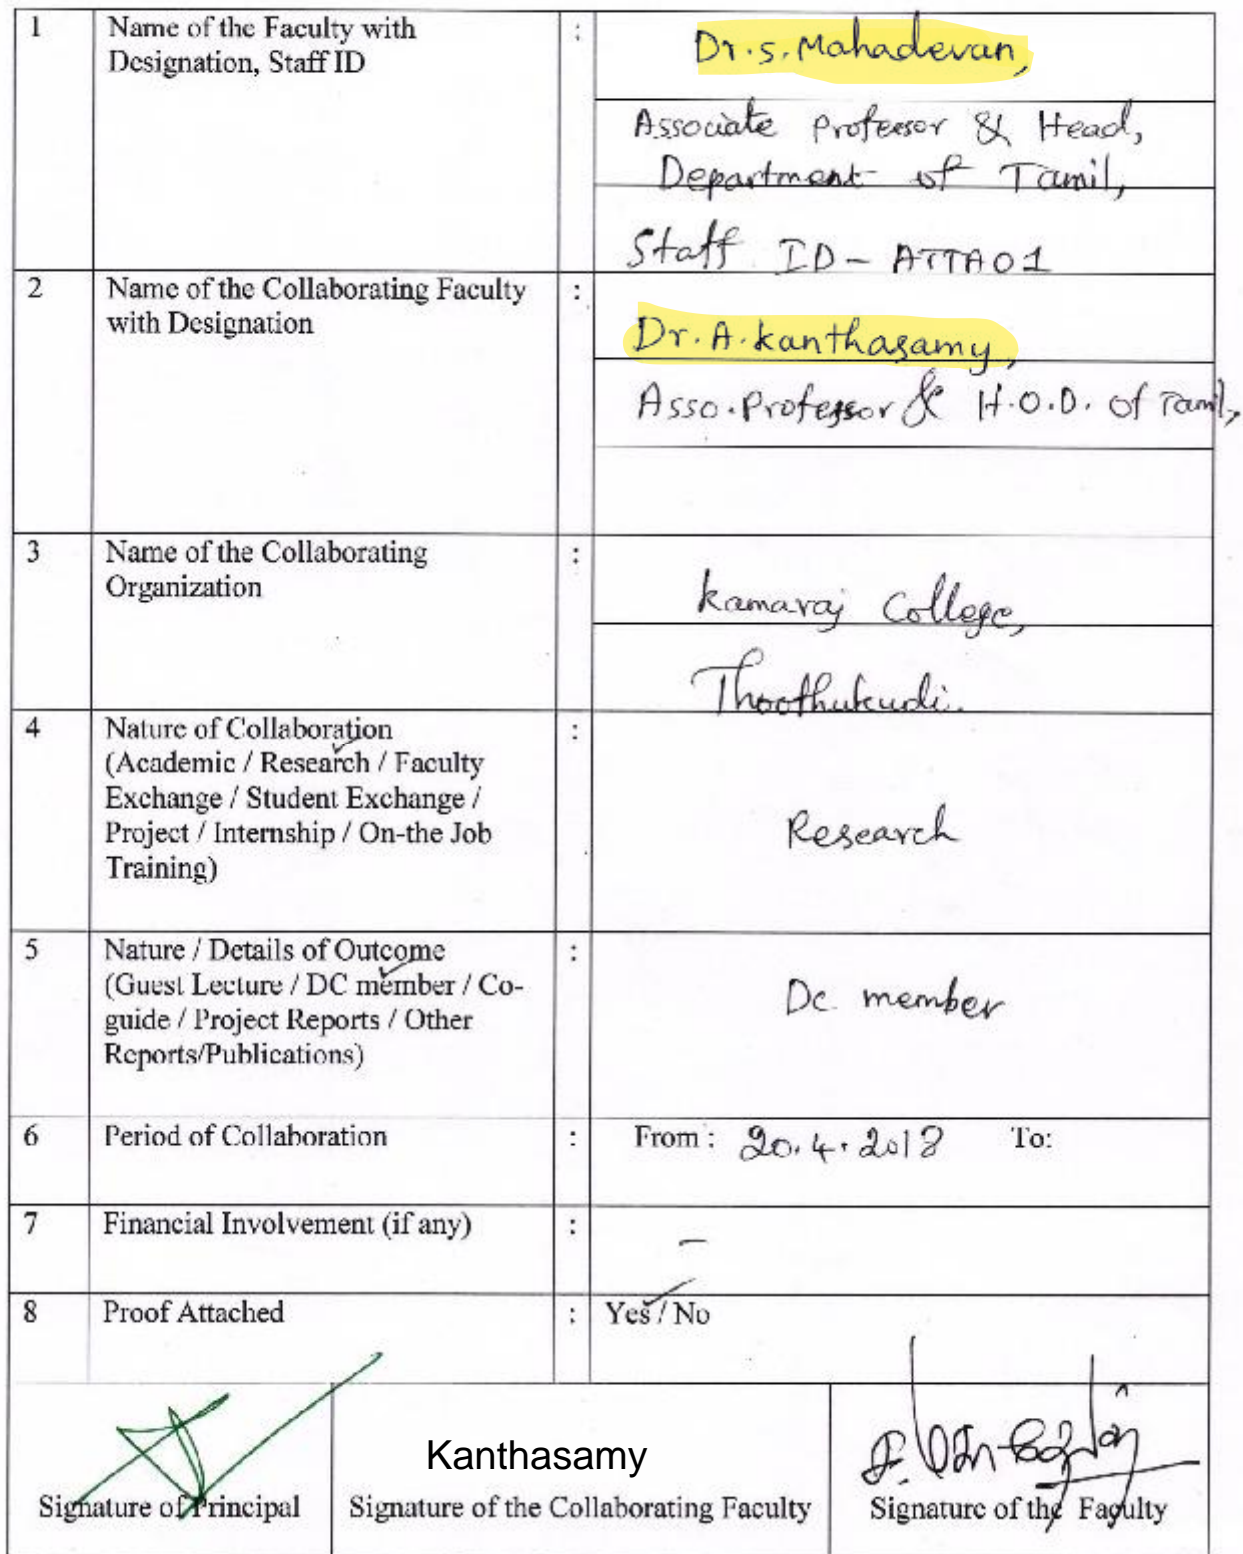 1 Name of the Faculty with : Dr.S.Mahadevan,
Designation, Staff ID
Associate Professor & Head,
Department of Tamil,
Staff ID - ATTA01
2 Name of the Collaborating Faculty :
with Designation Dr.A.Kanthasamy,
Asso.Professor & H.O.D. of Tamil,
3 Name of the Collaborating :
Organization Kamaraj College,
Thoothukudi.
4 Nature of Collaboration :
(Academic / Research / Faculty
Exchange / Student Exchange /
Project / Internship / On-the Job Research
Training)
5 Nature / Details of Outcome :
(Guest Lecture / DC member / Co- Dc member
guide / Project Reports / Other
Reports/Publications)
6 Period of Collaboration : From : 20.4.2018 To:
7 Financial Involvement (if any) : -
8 Proof Attached : Yes / No
Kanthasamy
Signature of Principal Signature of the Collaborating Faculty Signature of the Faculty